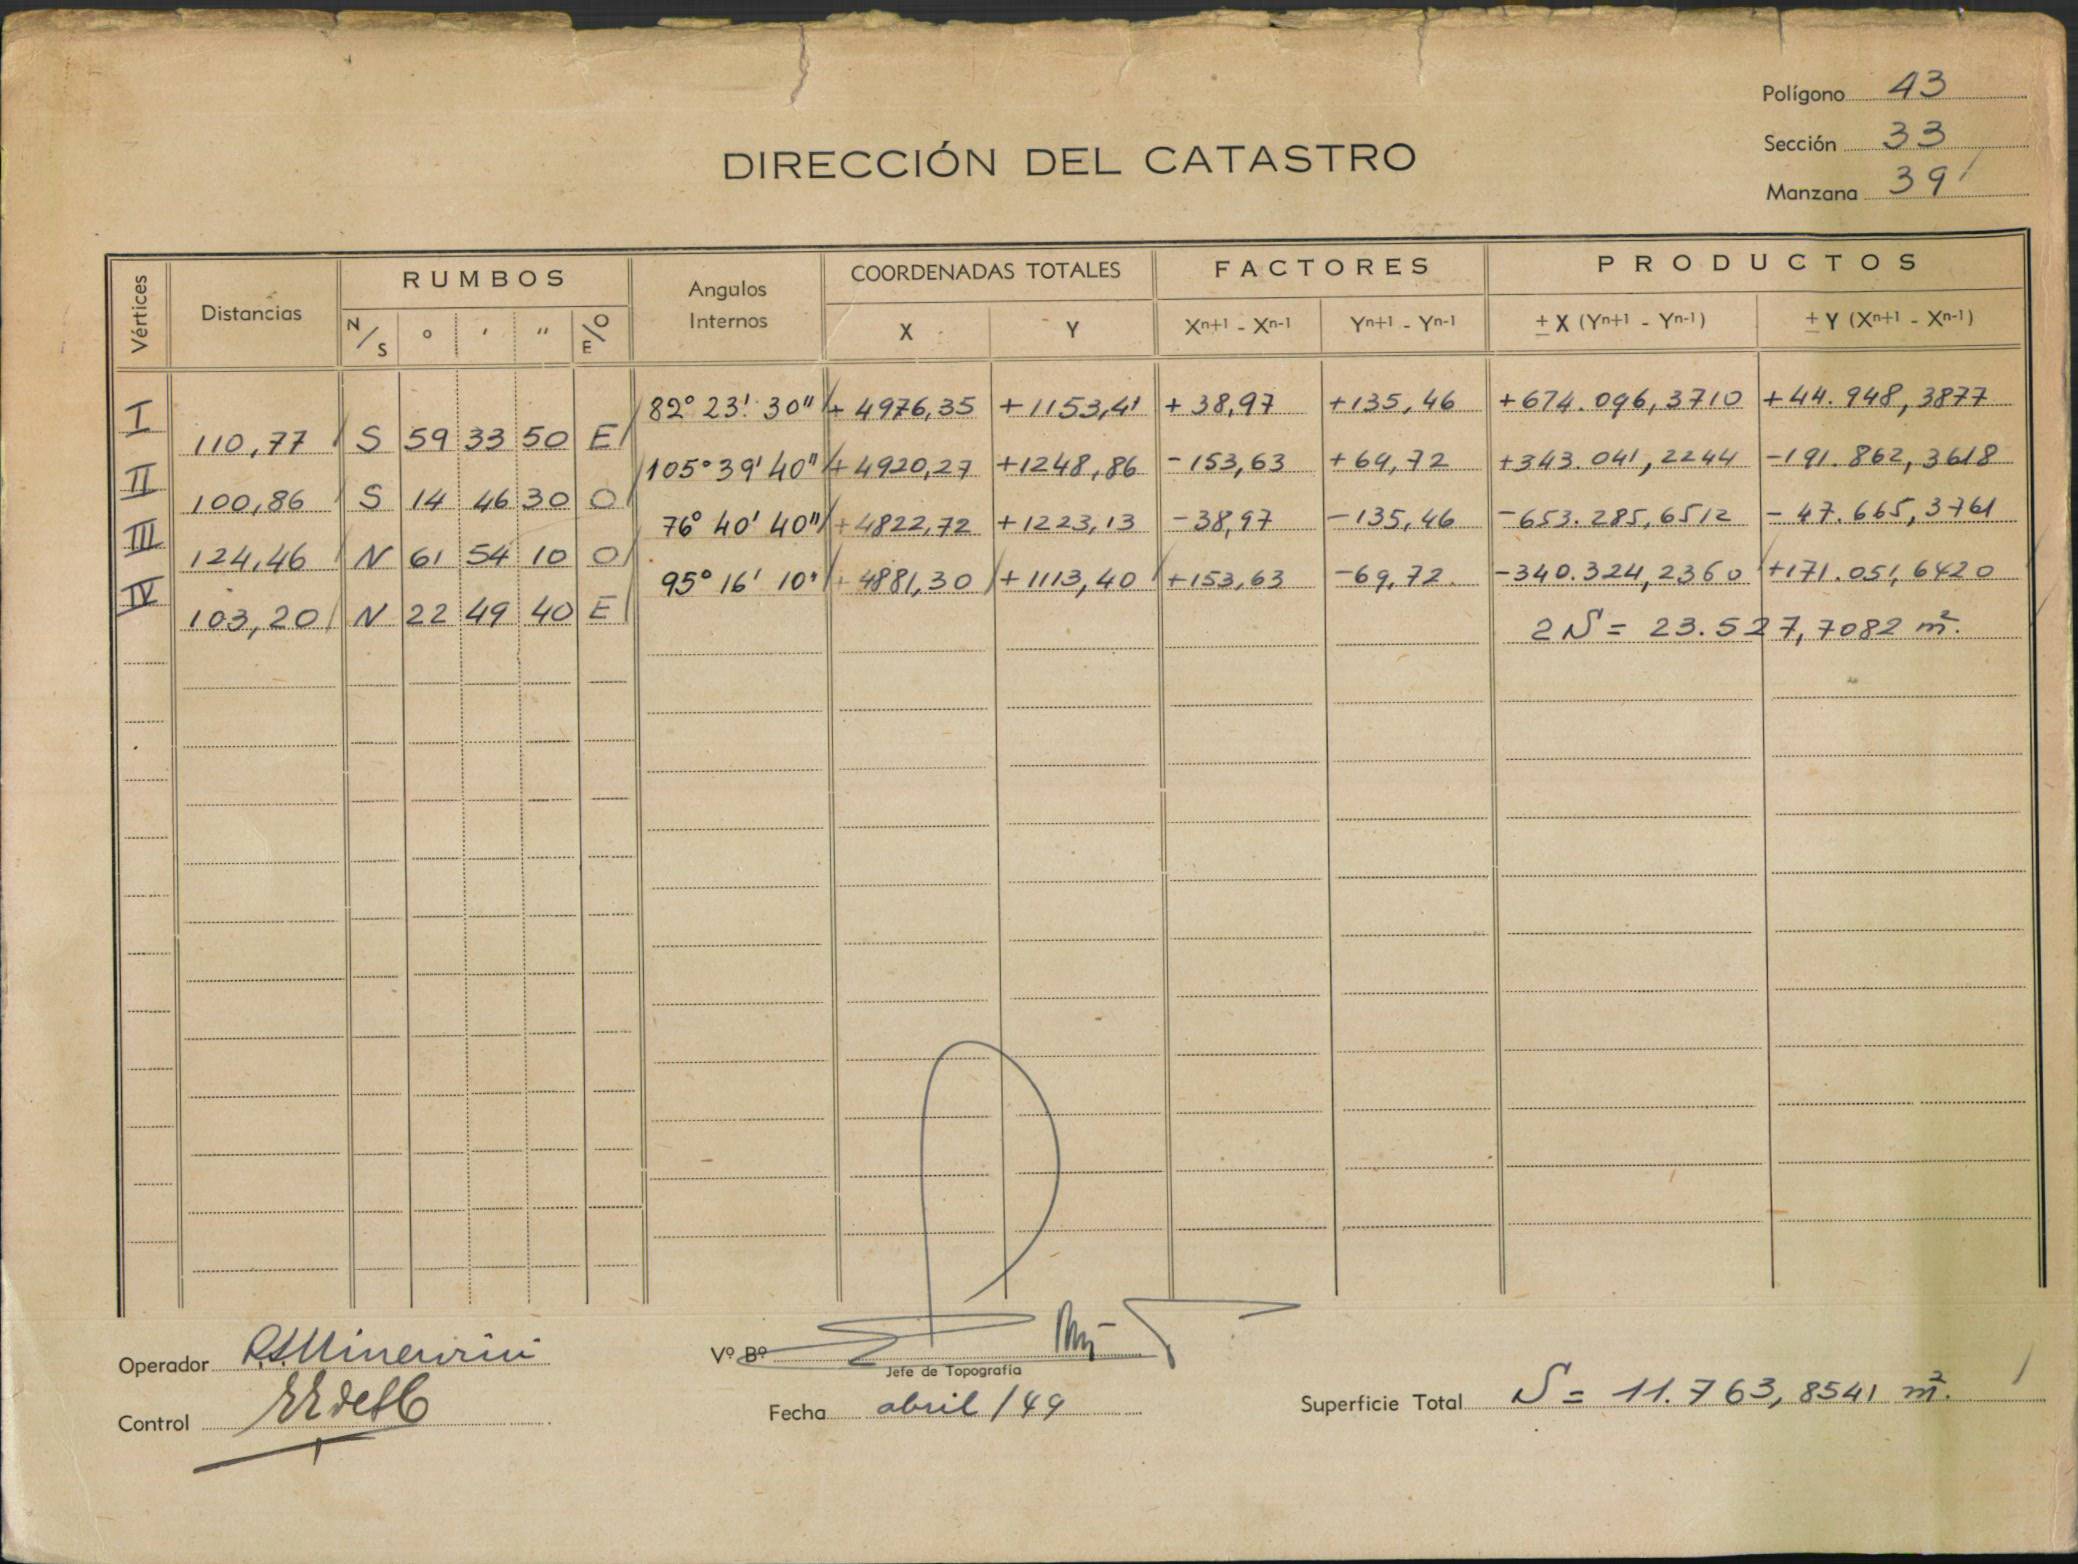 Polígono 43
DIRECCIÓN DEL CATASTRO
Sección 33
Manzana 39
Vértices Distancias RUMBOS Angulos Internos COORDENADAS TOTALES FACTORES PRODUCTOS
N/S ° ' " E/O X Y Xn+1 - Xn-1 Yn+1 - Yn-1 ± X (Yn+1 - Yn-1) ± Y (Xn+1 - Xn-1)
I 82° 23' 30" + 4976,35 +1153,41 + 38,97 +135,46 +674.096,3710 +44.948,3877
110,77 S 59 33 50 E
II 105° 39' 40" + 4920,27 +1248,86 -153,63 +69,72 +343.041,2244 -191.862,3618
100,86 S 14 46 30 O
III 76° 40' 40" +4822,72 +1223,13 -38,97 -135,46 -653.285,6512 - 47.665,3761
124,46 N 61 54 10 O
IV 95° 16' 10" + 4881,30 +1113,40 +153,63 -69,72 -340.324,2360 +171.051,6420
103,20 N 22 49 40 E
2S = 23.527,7082 m².
Operador
Vº Bº
Jefe de Topografía
Control
Fecha abril / 49
Superficie Total S = 11.763,8541 m².